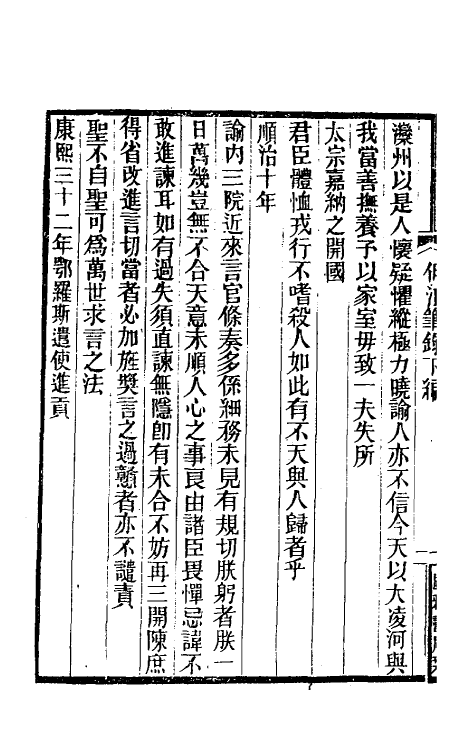 灤州以是人懷疑懼縱極力曉諭人亦不信今天以大淩河與
我當善撫養予以家室毋致一夫失所
太宗嘉納之開國
君臣體恤戎行不嗜殺人如此有不天與人歸者乎
順治十年
諭内三院近來言官條奏多係細務未見有規切朕躬者朕一
日萬幾豈無不合天意未順人心之事良由諸臣畏憚忌諱不
敢進諫耳如有過失須直諫無隱卽有未合不妨再三開陳庶
得省改進言切當者必加旌奬言之過戇者亦不譴責
聖不自聖可爲萬世求言之法
康熙三十二年鄂羅斯遣使進貢